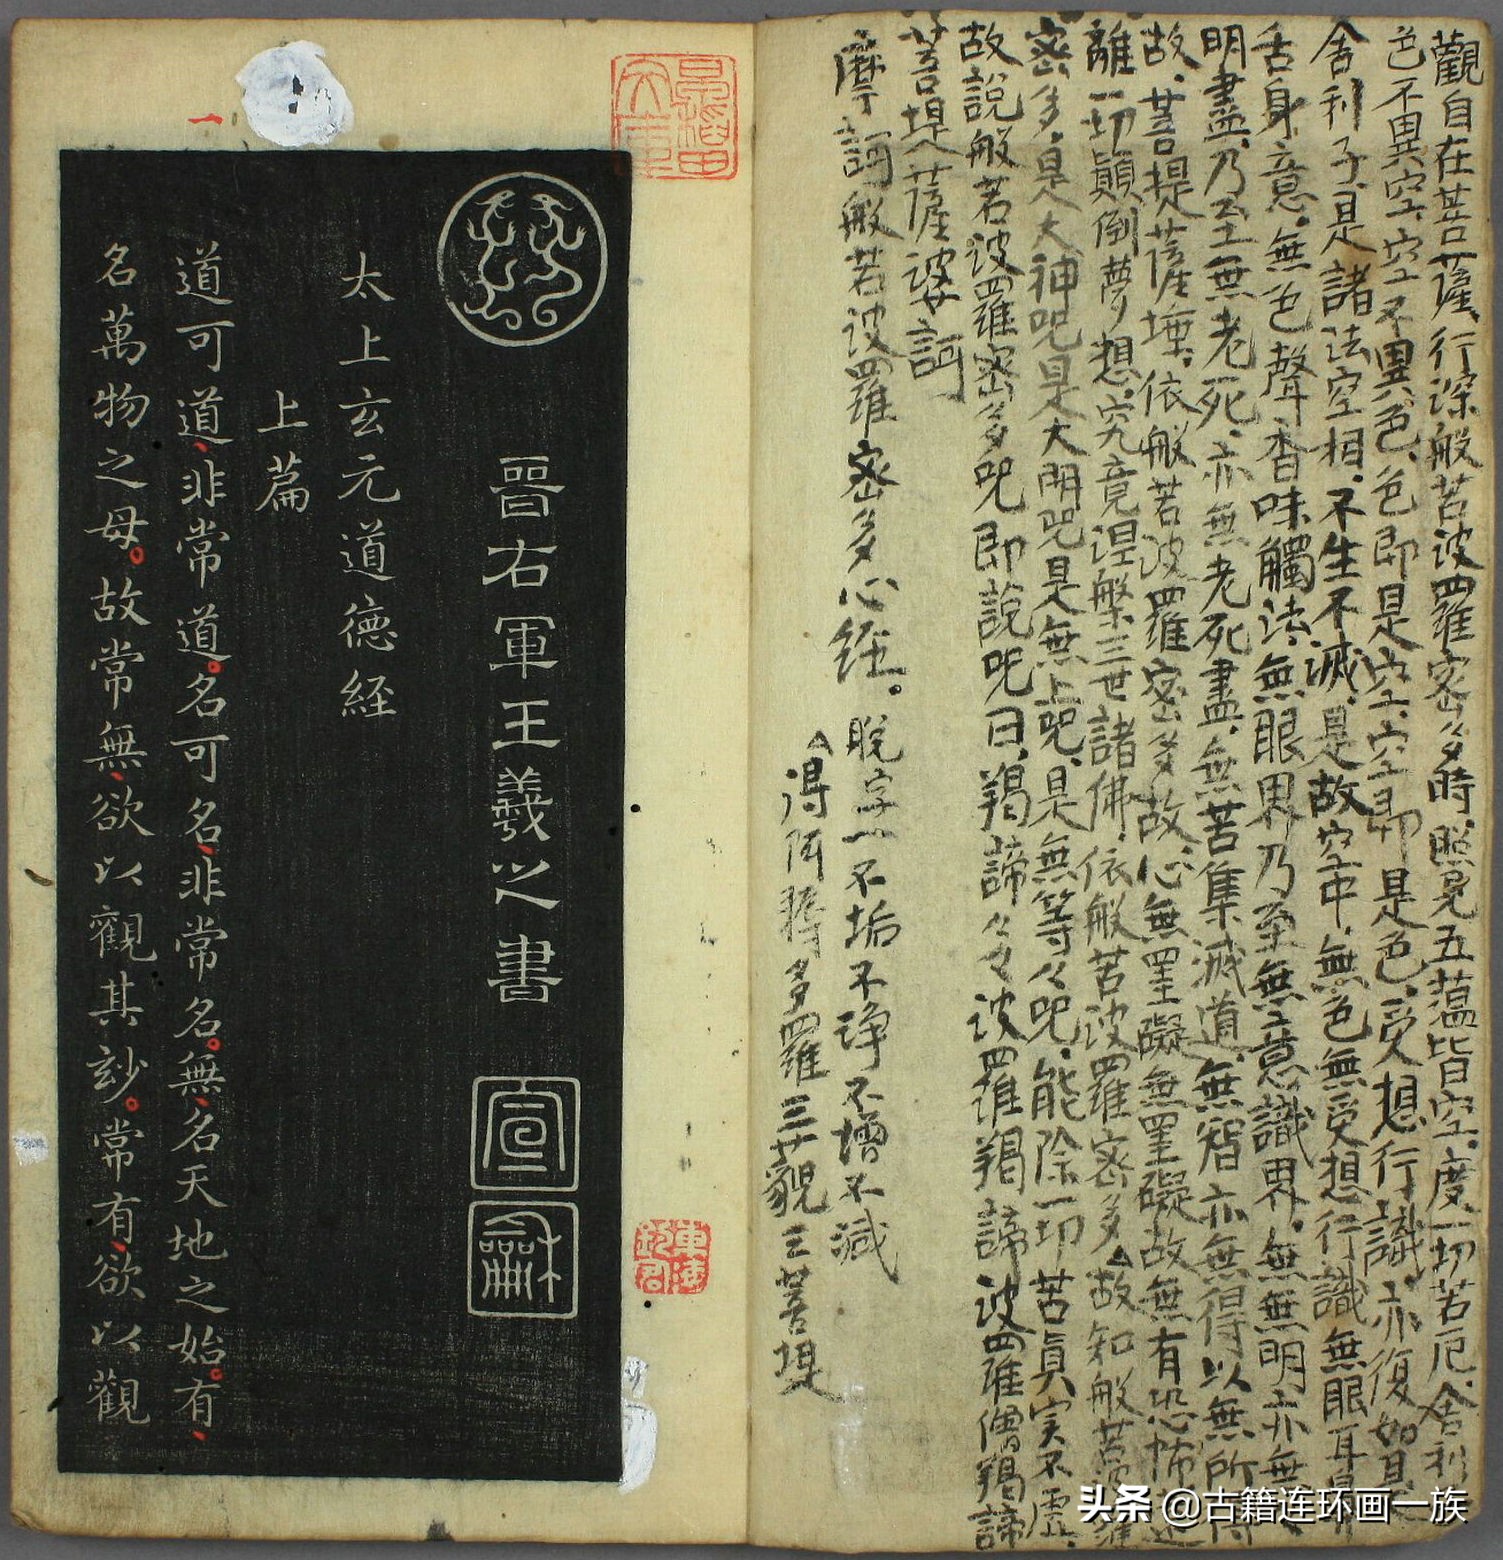 觀自在菩薩行深般若波羅密多時、照見五蘊皆空、度一切苦厄、舍利
色不異空、空不異色、色即是空、空即是色、受想行識、亦復如是
舍利子、是諸法空相、不生不滅、是故空中、無色無受想行識無眼耳鼻
舌身意、無色聲香味觸法、無眼界乃至無意識界、無無明亦無
明盡、乃至無老死、亦無老死盡、無苦集滅道、無智亦無得以無所得
故、菩提薩埵、依般若波羅密多故、心無罣礙無罣礙故無有恐怖遠
離一切顛倒夢想、究竟涅槃三世諸佛、依般若波羅密多、△故知般若波羅
密多、是大神呪是大明呪是無上呪、是無等々呪、能除一切苦真実不虛、
故說般若波羅密多呪即說呪曰、羯諦々々波羅羯諦波羅僧羯諦
菩提薩婆訶
摩訶般若波羅密多心経。 脱字一不垢不浄不増不減
△得阿耨多羅三藐三菩提
晉右軍王羲之書
宣
龢
太上玄元道德経
上篇
道可道、非常道。名可名、非常名。無、名天地之始。有、
名萬物之母。故常無、欲以觀其妙。常有、欲以觀
一
头条 @古籍连环画一族